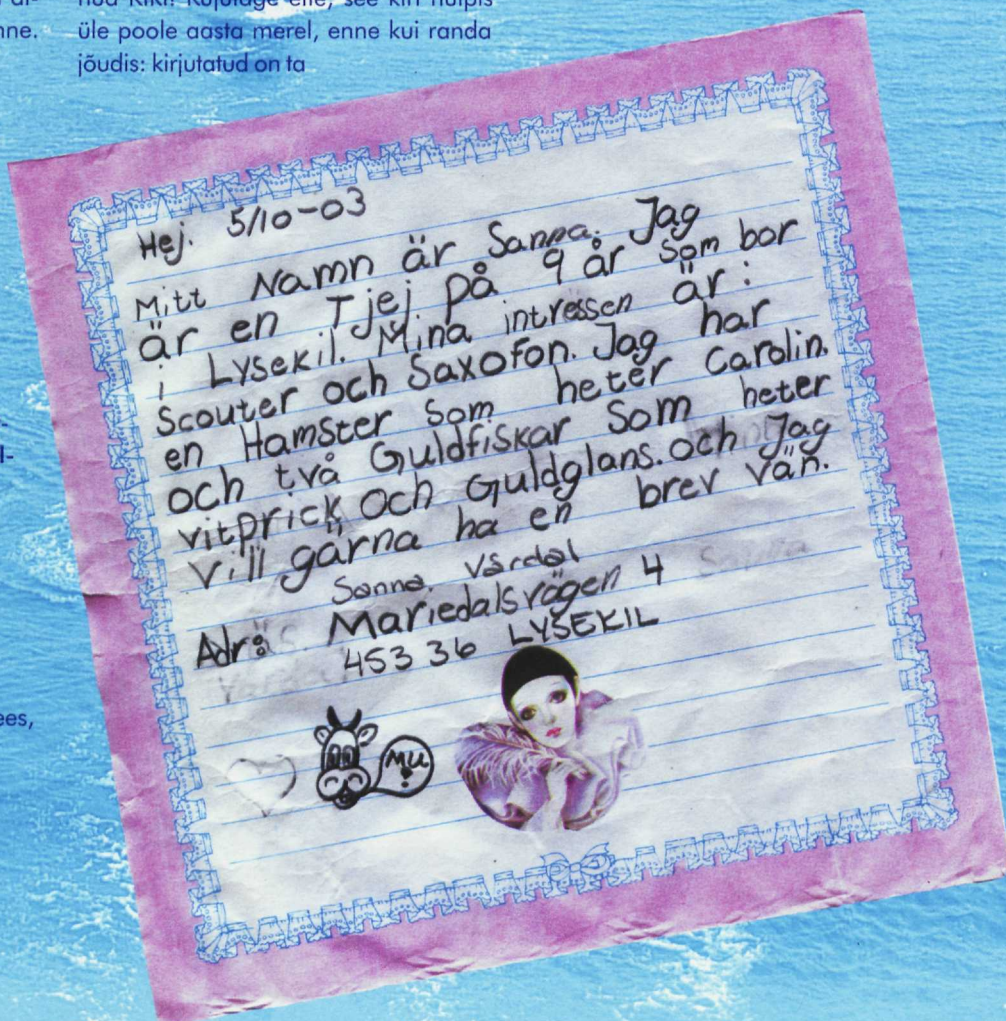 üle poole aasta merel, enne kui randa
jõudis: kirjutatud on ta
Hej. 5/10-03
Mitt Namn är Sanna. Jag
är en Tjej på 9 år som bor
i Lysekil. Mina intressen är:
Scouter och Saxofon. Jag har
en Hamster som heter Carolin.
och två Guldfiskar som heter
vitprick och Guldglans. och Jag
vill gärna ha en brev vän.
Sanna Vårdal
Adr: Mariedalsvägen 4
453 36 LYSEKIL
MU
ees,